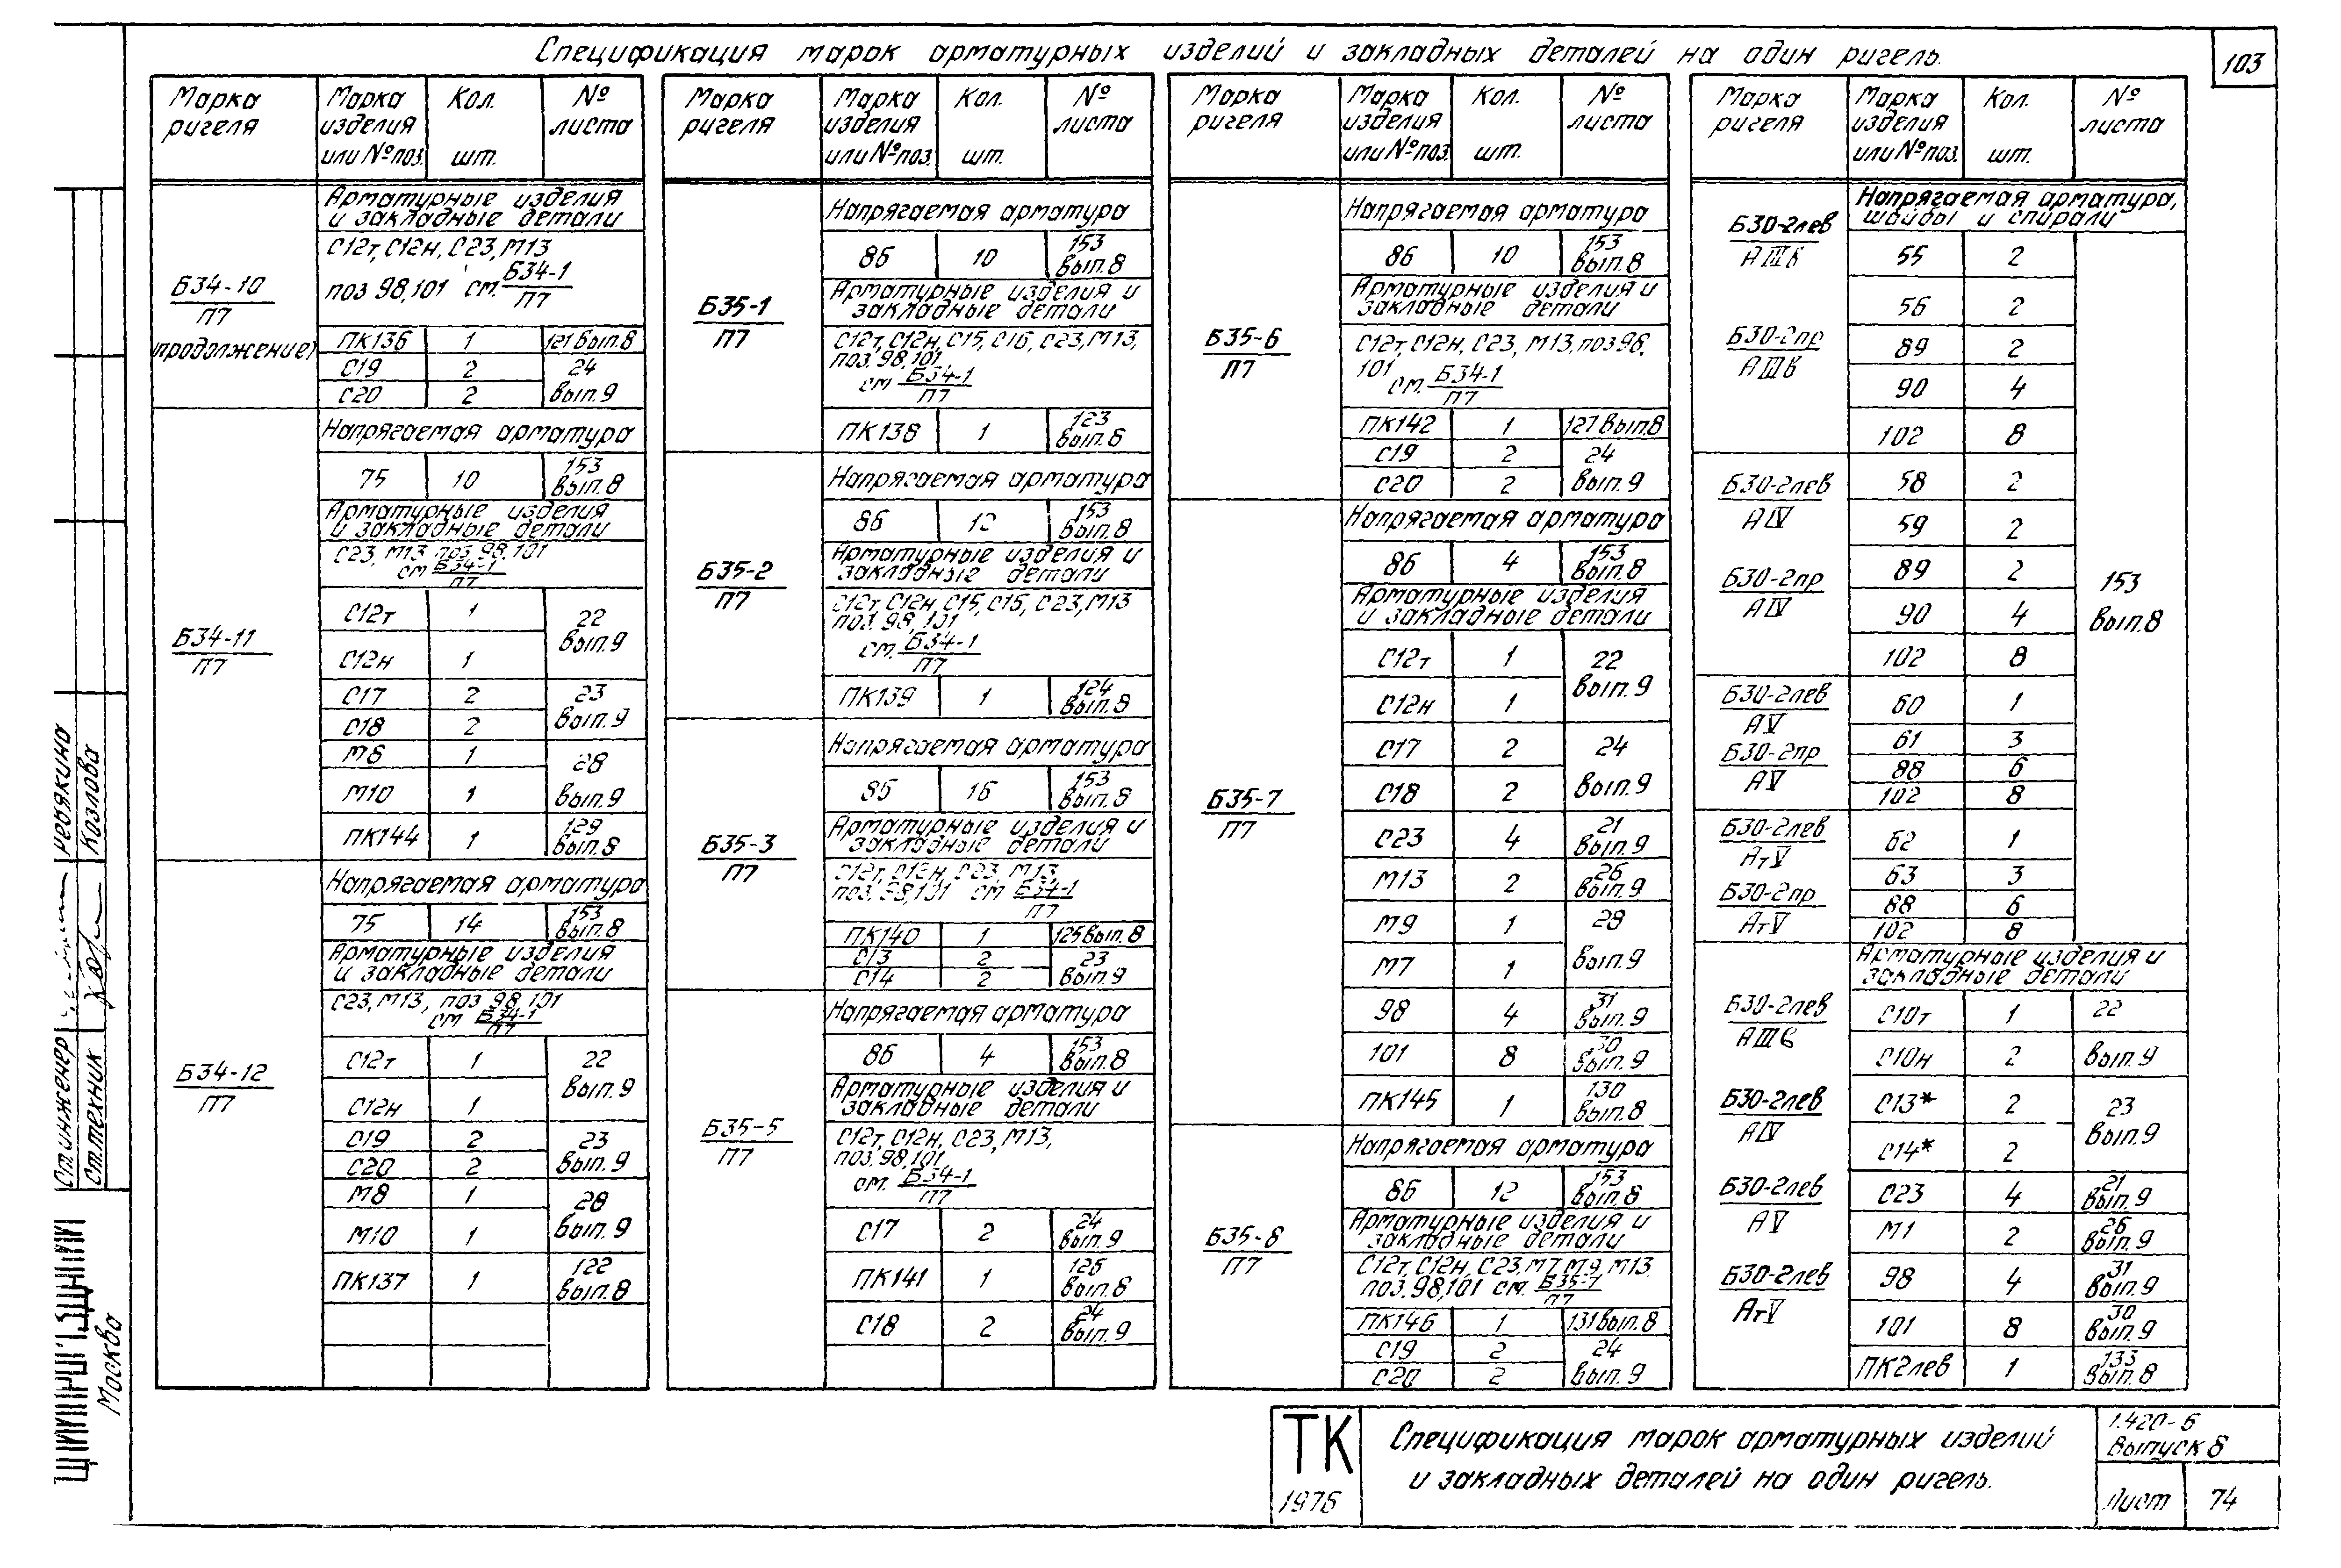 Спецификация марок арматурных изделий и закладных деталей на один ригель.
103
Марка ригеля | Марка изделия или № поз. | Кол. шт. | № листа
Б34-10/П7 (продолжение)
Арматурные изделия
и закладные детали
С12т, С12н, С23, М13
поз 98,101 см. Б34-1/П7
ПК136 | 1 | 121 вып.8
С19 | 2 | 24
С20 | 2 | вып.9
Б34-11/П7
Напрягаемая арматура
75 | 10 | 153 вып.8
Арматурные изделия
и закладные детали
С23, М13 поз. 98,101
см Б34-1/П7
С12т | 1 | 22
С12н | 1 | вып.9
С17 | 2 | 23
С18 | 2 | вып.9
М6 | 1 | 28
М10 | 1 | вып.9
ПК144 | 1 | 129 вып.8
Б34-12/П7
Напрягаемая арматура
75 | 14 | 153 вып.8
Арматурные изделия
и закладные детали
С23, М13, поз 98,101
см Б34-1/П7
С12т | 1 | 22
С12н | 1 | вып.9
С19 | 2 | 23
С20 | 2 | вып.9
М8 | 1 | 28
М10 | 1 | вып.9
ПК137 | 1 | 122 вып.8
Марка ригеля | Марка изделия или № поз. | Кол. шт. | № листа
Б35-1/П7
Напрягаемая арматура
86 | 10 | 153 вып.8
Арматурные изделия и
закладные детали
С12т, С12н, С15, С16, С23, М13,
поз. 98,101
см Б34-1/П7
ПК138 | 1 | 123 вып.8
Б35-2/П7
Напрягаемая арматура
86 | 153 вып.8
Арматурные изделия и
закладные детали
С12т, С12н, С15, С16, С23, М13
поз. 98, 101
см. Б34-1/П7
ПК139 | 1 | 124 вып.8
Б35-3/П7
Напрягаемая арматура
86 | 16 | 153 вып.8
Арматурные изделия и
закладные детали
С12т, С12н, С23, М13,
поз. 98,101 см Б34-1/П7
ПК140 | 1 | 125 вып.8
С13 | 2 | 23
С14 | 2 | вып.9
Б35-5/П7
Напрягаемая арматура
86 | 4 | 153 вып.8
Арматурные изделия и
закладные детали
С12т, С12н, С23, М13,
поз. 98,101
см. Б34-1/П7
С17 | 2 | 24 вып.9
ПК141 | 1 | 126 вып.8
С18 | 2 | 24 вып.9
Марка ригеля | Марка изделия или № поз. | Кол. шт. | № листа
Б35-6/П7
Напрягаемая арматура
86 | 10 | 153 вып.8
Арматурные изделия и
закладные детали
С12т, С12н, С23, М13, поз 98,
101 см. Б34-1/П7
ПК142 | 1 | 127 вып.8
С19 | 2 | 24
С20 | 2 | вып.9
Б35-7/П7
Напрягаемая арматура
86 | 4 | 153 вып.8
Арматурные изделия
и закладные детали
С12т | 1 | 22
С12н | 1 | вып.9
С17 | 2 | 24
С18 | 2 | вып.9
С23 | 4 | 21 вып.9
М13 | 2 | 26 вып.9
М9 | 1 | 28
М7 | 1 | вып.9
98 | 4 | 31 вып.9
101 | 8 | 30 вып.9
ПК145 | 1 | 130 вып.8
Б35-8/П7
Напрягаемая арматура
86 | 12 | 153 вып.8
Арматурные изделия и
закладные детали
С12т, С12н, С23, М7, М9, М13
поз. 98,101 см. Б35-7/П7
ПК146 | 1 | 131 вып.8
С19 | 2 | 24
С20 | 2 | вып.9
Марка ригеля | Марка изделия или № поз. | Кол. шт. | № листа
Напрягаемая арматура,
шайбы и спирали
Б30-2лев/АIIIв
Б30-2пр/АIIIв
55 | 2
56 | 2
89 | 2
90 | 4
102 | 8
Б30-2лев/АIV
Б30-2пр/АIV
58 | 2
59 | 2
89 | 2
90 | 4
102 | 8
153
вып.8
Б30-2лев/АV
Б30-2пр/АV
60 | 1
61 | 3
88 | 6
102 | 8
Б30-2лев/АтV
Б30-2пр/АтV
62 | 1
63 | 3
88 | 6
102 | 8
Арматурные изделия и
закладные детали
Б30-2лев/АIIIв
Б30-2лев/АIV
Б30-2лев/АV
Б30-2лев/АтV
С10т | 1 | 22
С10н | 2 | вып.9
С13* | 2 | 23
С14* | 2 | вып.9
С23 | 4 | 21 вып.9
М1 | 2 | 26 вып.9
98 | 4 | 31 вып.9
101 | 8 | 30 вып.9
ПК2лев | 1 | 133 вып.8
Ст. инженер
Ревякина
Ст. техник
Козлова
Москва
ТК
1976
Спецификация марок арматурных изделий
и закладных деталей на один ригель.
1.420-6
Выпуск 8
Лист 74